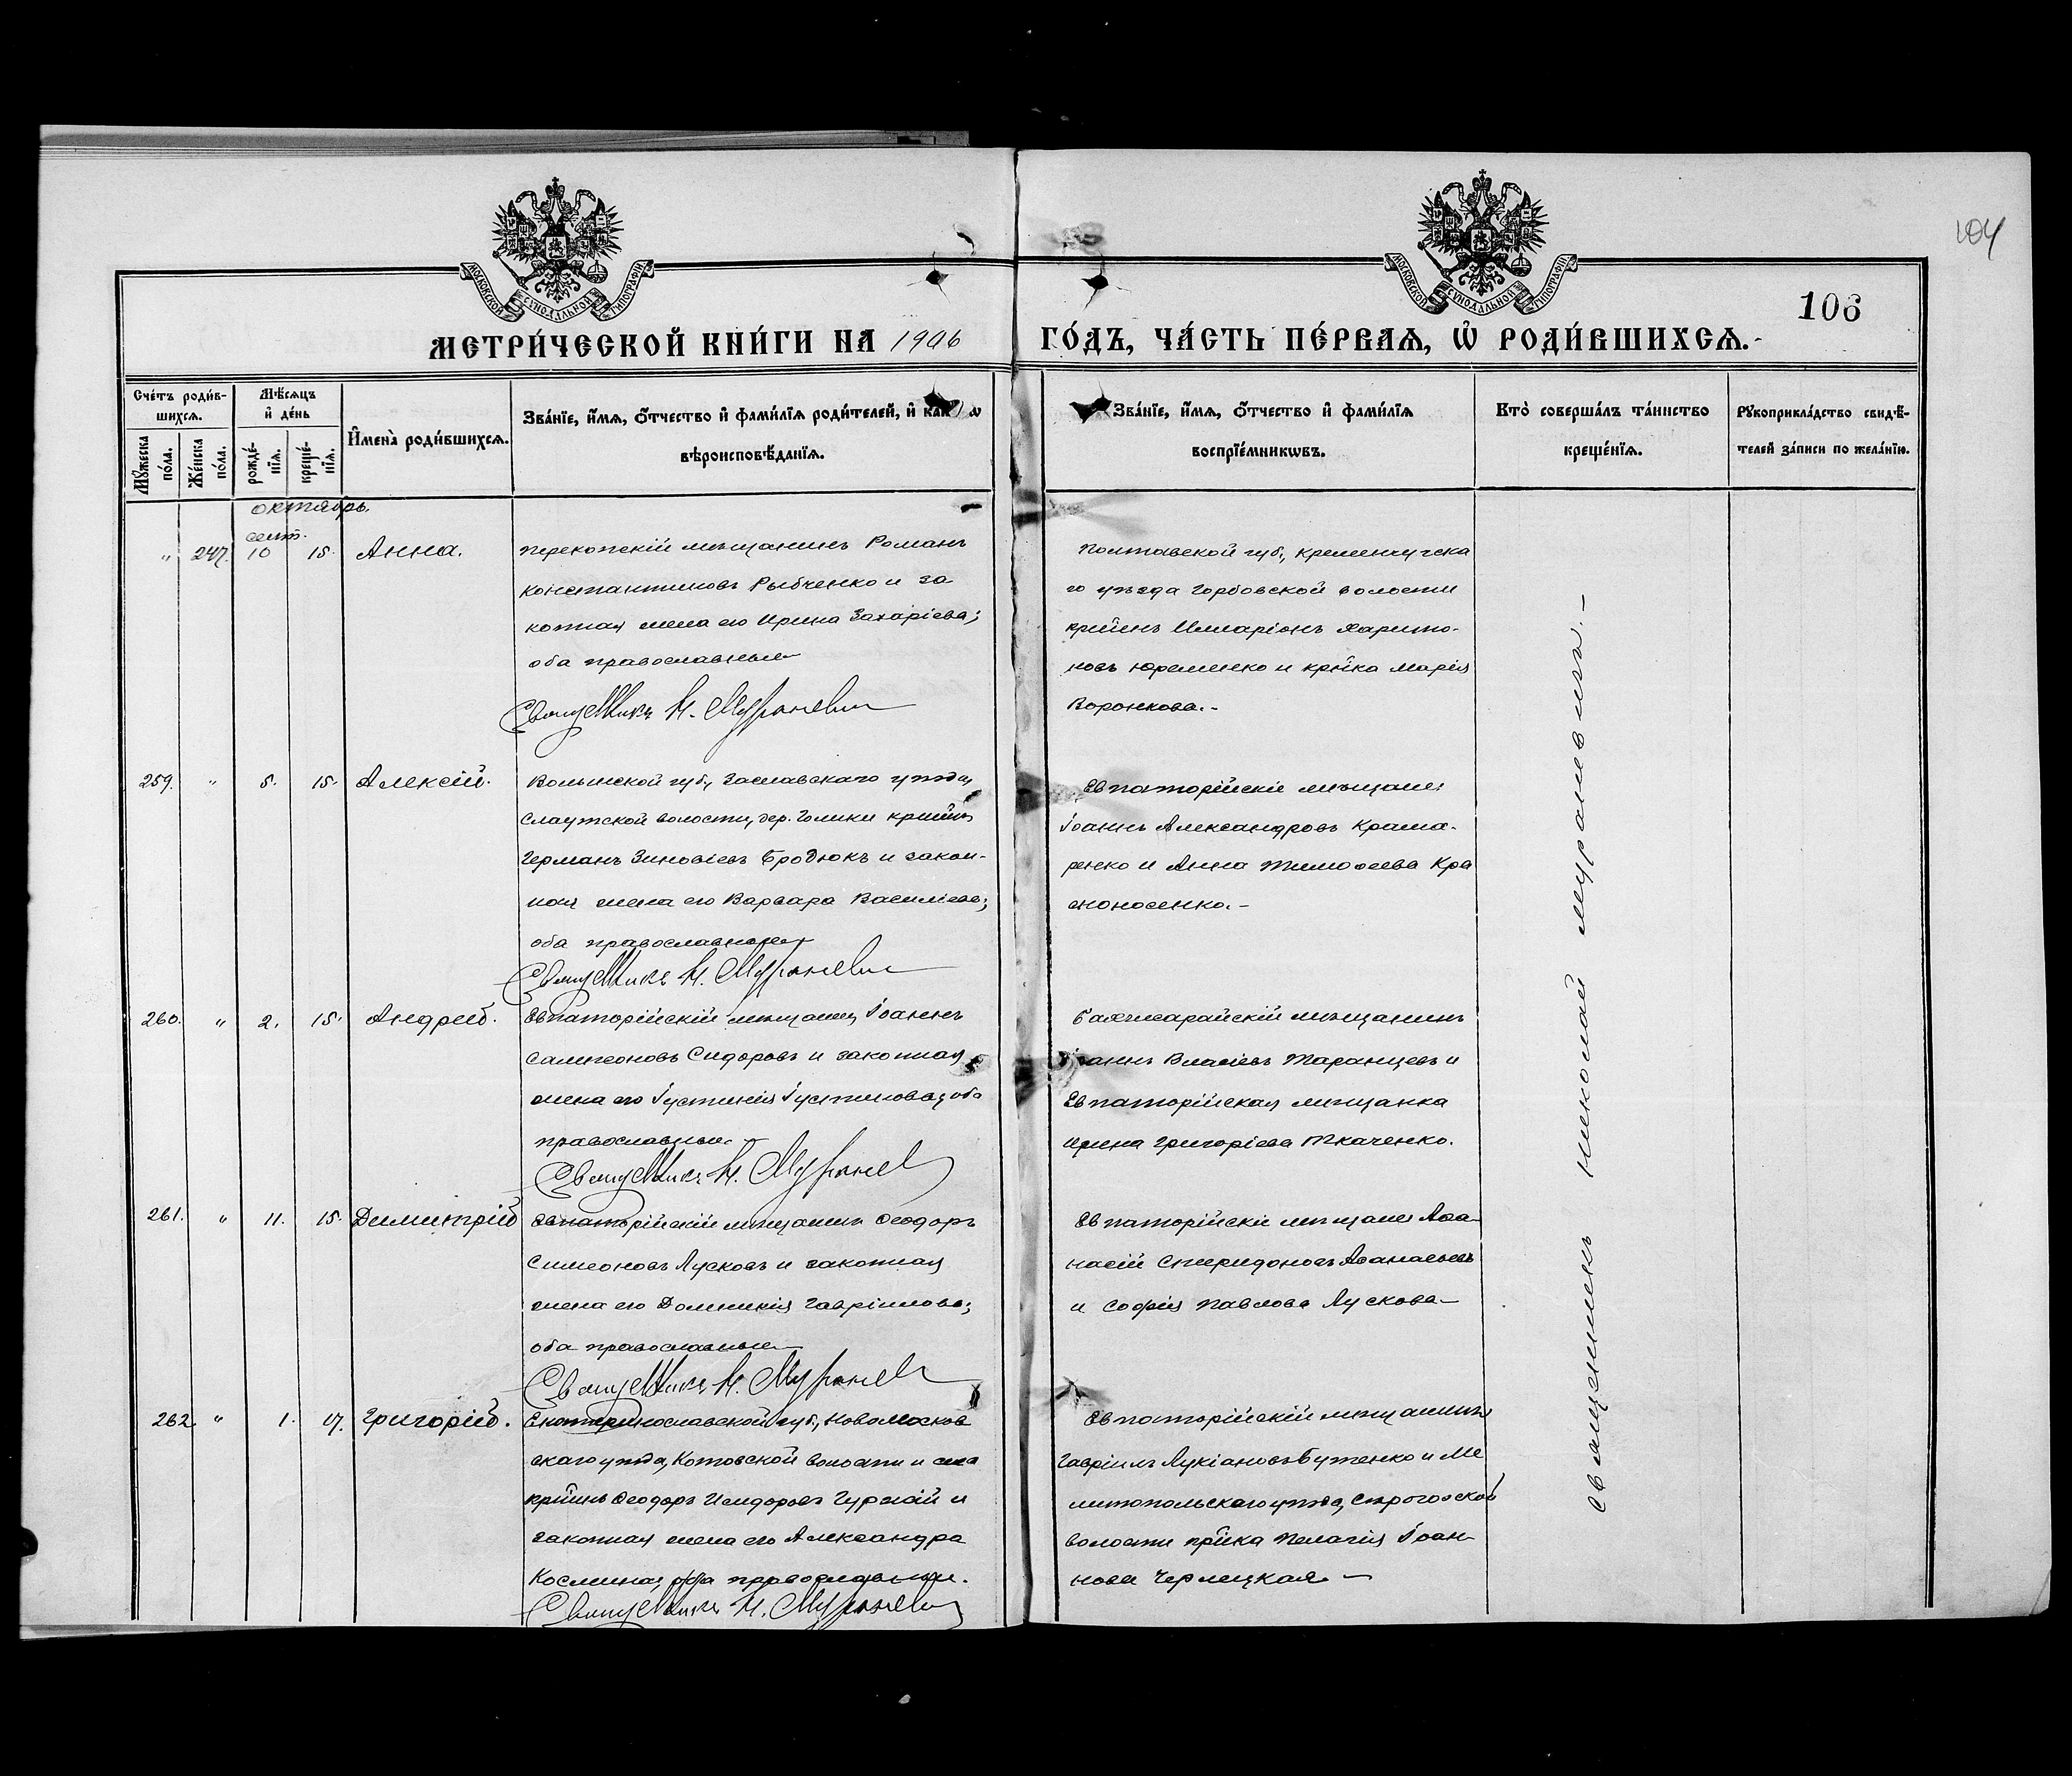 104
106
МОСКОВСКОЙ СѴНОДАЛЬНОЙ ТИПОГРАФІИ
МОСКОВСКОЙ СѴНОДАЛЬНОЙ ТИПОГРАФІИ
МЕТРИ́ЧЕСКОЙ КНИ́ГИ НА 1906
ГО́ДЪ, ЧА́СТЬ ПЕ́РВАѦ, Ѡ҆ РОДИ́ВШИХСѦ.
Сче́тъ роди́в-
шихсѧ.
Мꙋ́жеска по́ла.
Же́нска по́ла.
Мѣ́сѧцъ
и҆ де́нь
рожде́-
нїѧ.
креще́-
нїѧ.
И҆мена̀ роди́вшихсѧ.
Зва́нїе, и҆́мѧ, ѻ҆́тчество и҆ фами́лїѧ роди́телей, и҆ как ѡ
вѣроисповѣ́данїѧ.
Зва́нїе, и҆́мѧ, ѻ҆́тчество и҆ фами́лїѧ
воспрїе́мникѡвъ.
Кто̀ соверша́лъ та́инство
креще́нїѧ.
Рꙋкоприкла́дство свидѣ́-
телей за́писи по жела́нїю.
октябрь.
сент.
" 247. 10 15. Анна.
Перекопскій мѣщанинъ Романъ
Константиновъ Рыбченко и за
конная жена его Ирина Захаріева;
оба православные
Священникъ Н. Муралевич
Полтавской губ., Кременчугска
го уѣзда Горбовской волости
кр-нинъ Илларіонъ Харито-
новъ Юременко и кр-нка Марія
Воронкова.-
259. " 5. 15. Алексій.
Волынской губ., Заславскаго уѣзда,
Славутской волости, дер. Голики кр-нинъ
Германъ Зиновіевъ Бродюкъ и закон-
ная жена его Варвара Василіева;
оба православные
Священникъ Н. Муралевич
Евпаторійскіе мѣщане:
Іоаннъ Александровъ Крама-
ренко и Анна Тимоѳеева Кра
сноносенко.-
260. " 2. 15. Андрей.
Евпаторійскій мѣщанинъ Іоаннъ
Сампсоновъ Сидоровъ и законная
жена его Іустинія Іустинова; оба
православные.
Священникъ Н. Муралев
Бахчисарайскій мѣщанинъ
Іоаннъ Власіевъ Таранцевъ и
Евпаторійская мѣщанка
Ирина Григоріева Ткаченко.
261. " 11. 15. Димитрій
Евпаторійскій мѣщанинъ Ѳеодоръ
Симеоновъ Лусковъ и законная
жена его Домникія Гавріилова;
оба православные
Священникъ Н. Муралев
Евпаторійскіе мѣщане Аѳа-
насій Спиридоновъ Аѳанасьевъ
и Софія Павлова Лускова-
262. " 1. 17. Григорій.
Екатеринославской губ., Новомосков
скаго уѣзда, Котовской волости и села
кр-нинъ Ѳеодоръ Исидоровъ Гуржій и
законная жена его Александра
Космина, оба православные.
Священникъ Н. Муралевич
Евпаторійскій мѣщанинъ
Гавріилъ Лукіановъ Бутенко и Ме
литопольскаго уѣзда, Строгоской
волости кр-нка Пелагія Іоан-
нова Чернецкая -
Священникъ Николай Муралевичъ.-